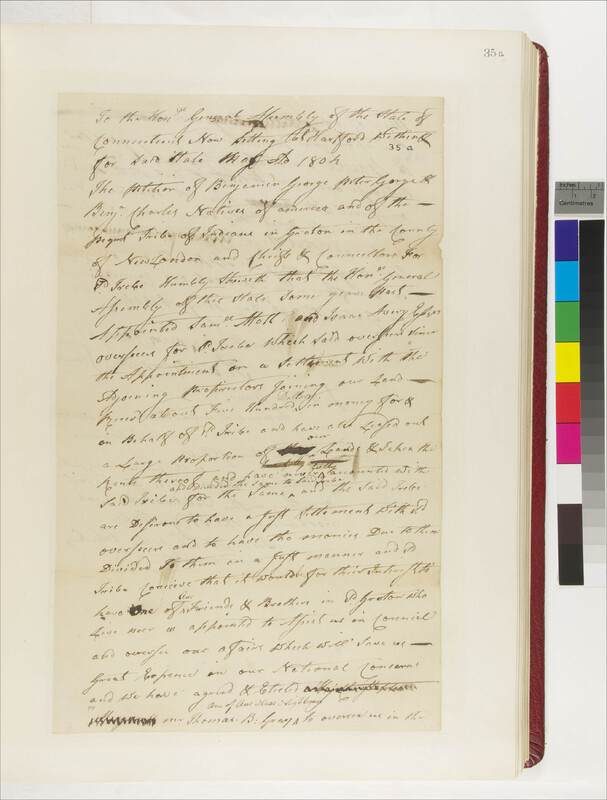 35a
To the Hon.ble General Assembly of the State of
Connecticut Now Sitting at Hartford Within &
for Said State May AD 1804
35a
The Petition of Benjamin George Peter George &
Benj.n Charles Natives of america and of the —
Pequt Tribe of Indians in Groton in the County
of New London and Chiefs & Connectors For
Sd Tribe Humbly Sheweth that the Hon.ble General
Assembly of this State Some years Past —
Appointed Sam.ll Mott and Isaac Avery Esqrs
overseers for Sd Tribe Which Said overseers Since
the Appointment on a Settlement With the
Adjoining Proprietors Joining our Land —
Dollars
Receiv'd about Five Hundred in money for &
in Behalf of Sd Tribe and have also Leased out
our
a Large Proportion of Lands & Taken the
fully
Rents thereof and have never accounted With
and Divided the Same to Said Tribe
Said Tribe for the Same and the Said Tribe
are Desirous to have a Just Settlement With Sd
overseers and to have the monies Due to them
Divided To them in a Just manner and Sd
Tribe Conceive that it Would be for their Interest to
our
have One of Friends & Brothers in Sd Groton Who
Live near us appointed to Assist us in Council
and oversee our afairs Which Will Save us —
Great Expence in our National Concerns
and We have agreed & Elected
one of our Near Neighbours
mr Thomas B. Gray to oversee us in the
inches 1 2
Centimetres